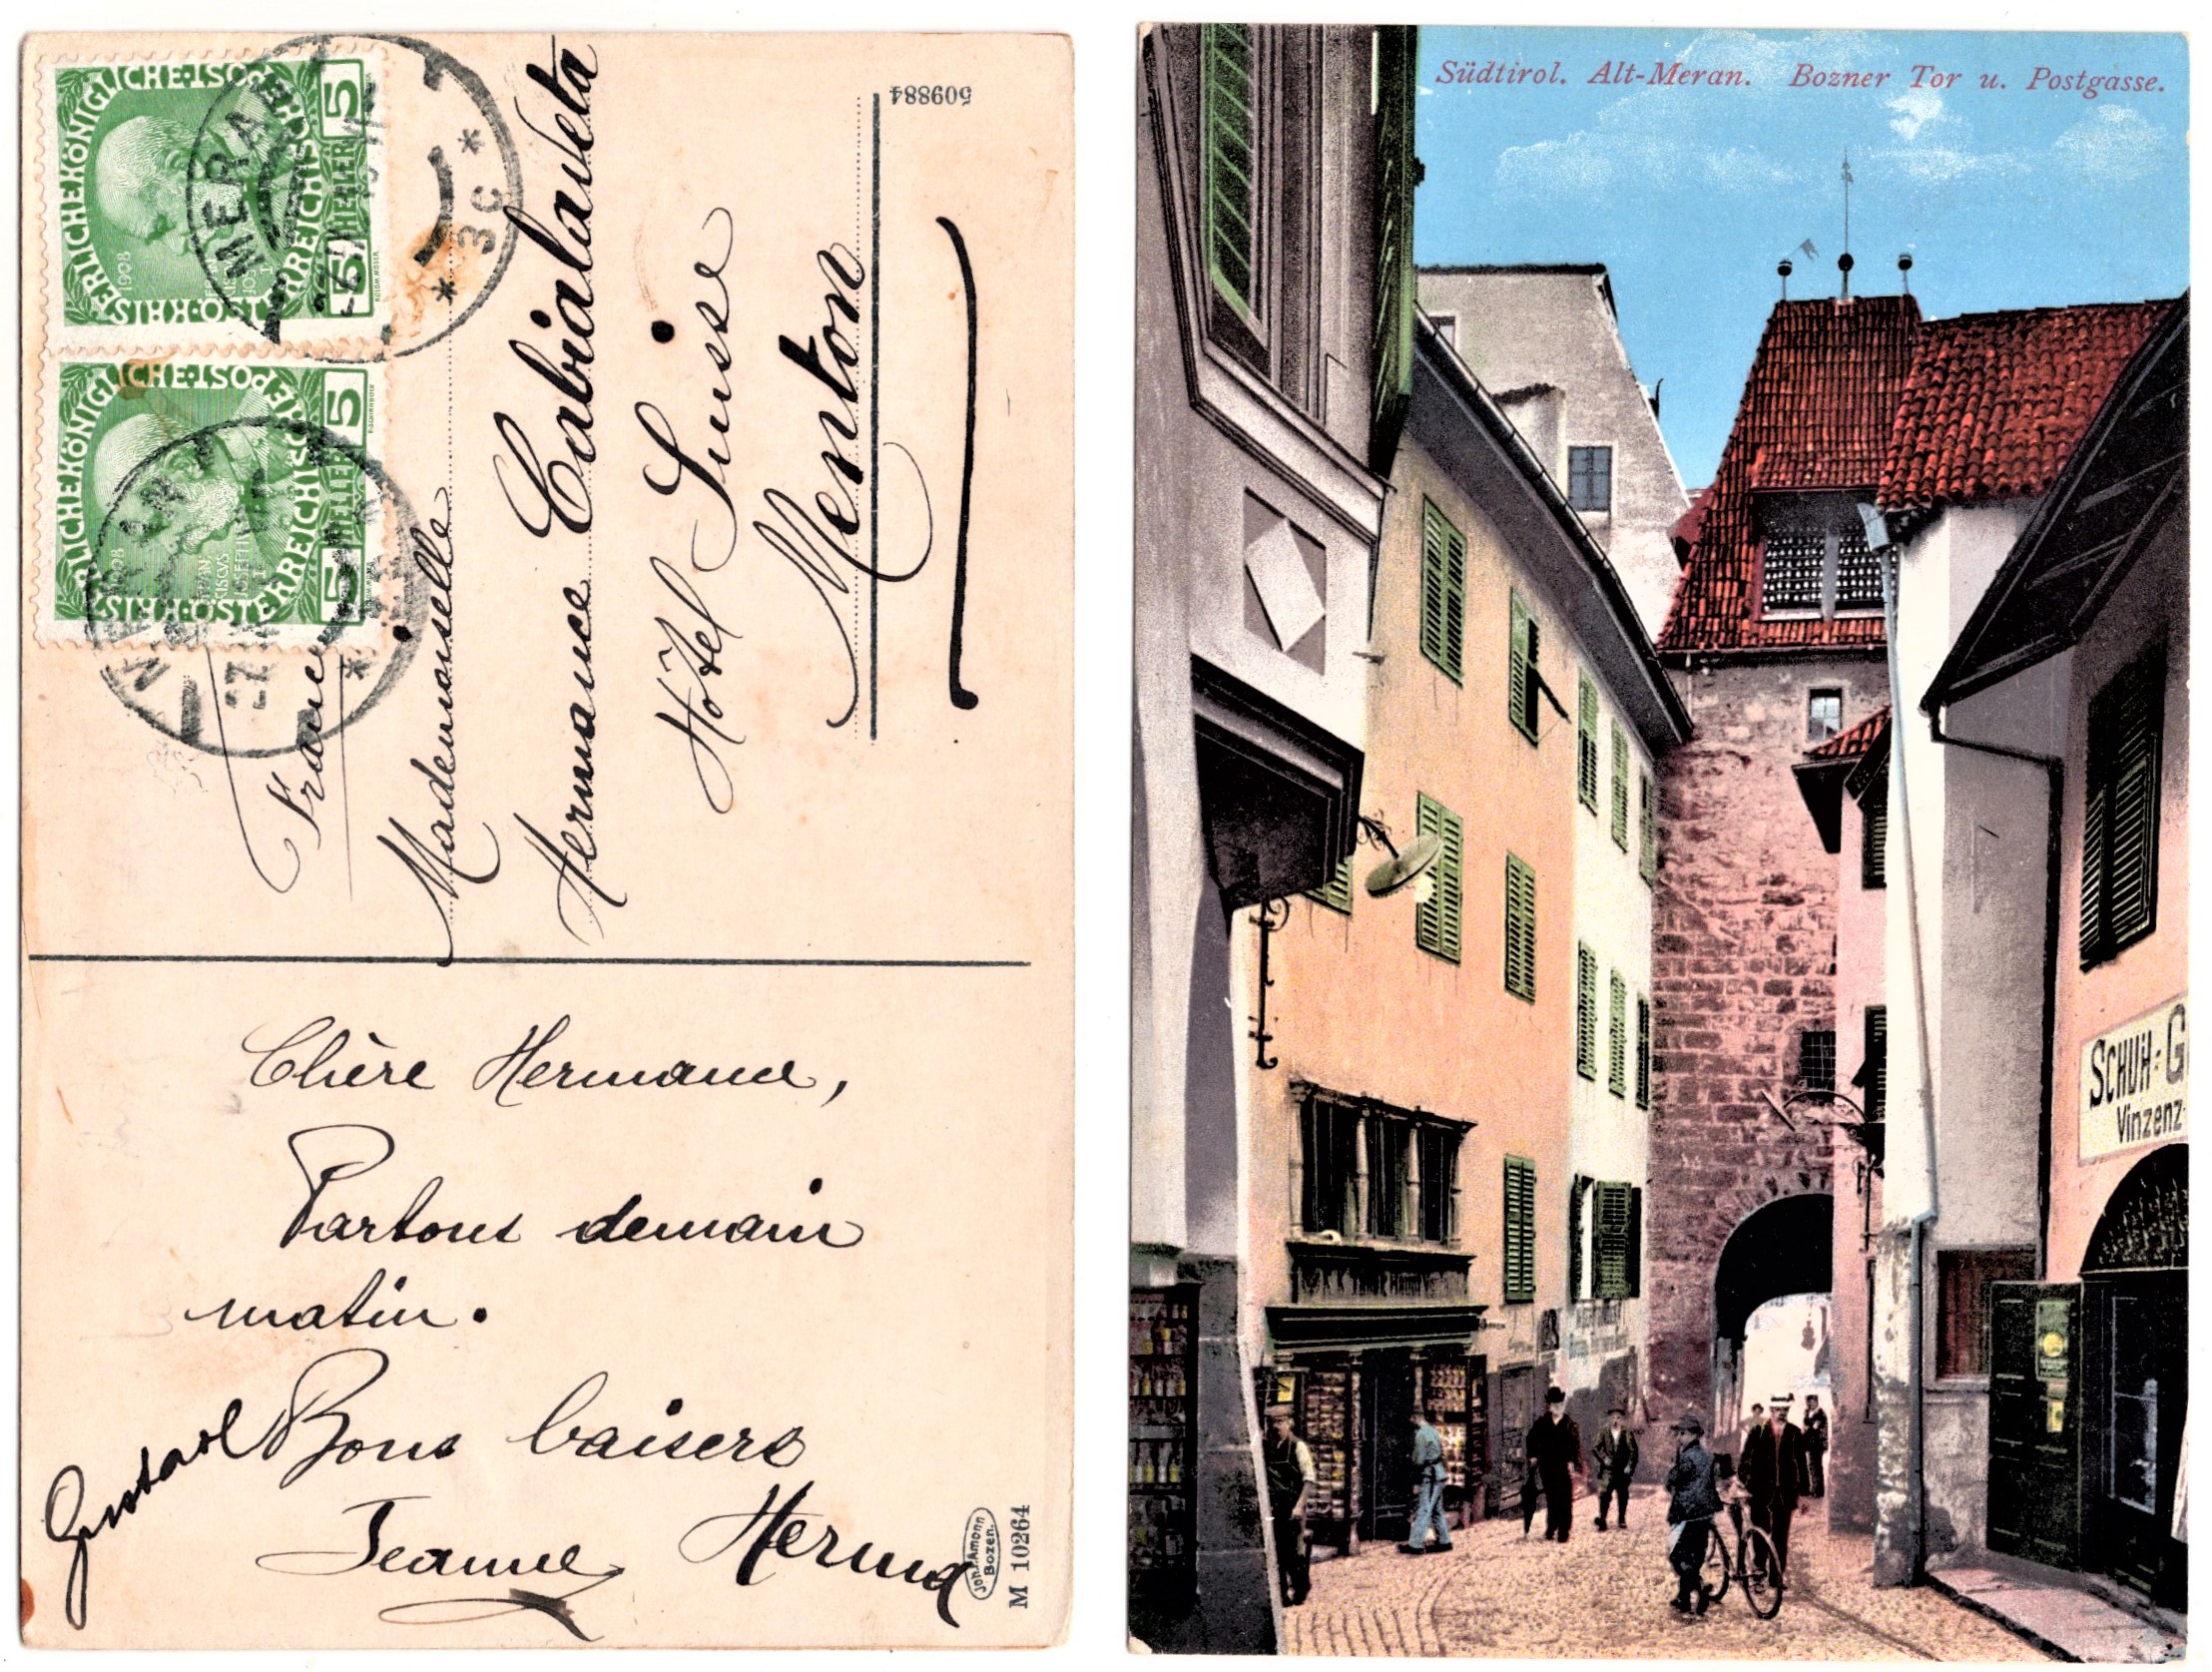 KAISERLICHE KÖNIGLICHE ÖSTERREICHISCHE POST
5 HELLER 5
1908
MERAN
* 3C *
KAISERLICHE KÖNIGLICHE ÖSTERREICHISCHE POST
5 HELLER 5
1908
MERAN
France
Mademoiselle
Hermance
Hôtel Suisse
Menton
509884
Chère Hermance,
Partons demain
matin.
Bons baisers
Gustav
Jeanne Herma
Joh. F. Amonn
Bozen.
M 10264
Südtirol. Alt-Meran. Bozner Tor u. Postgasse.
SCHUH-G
Vinzenz